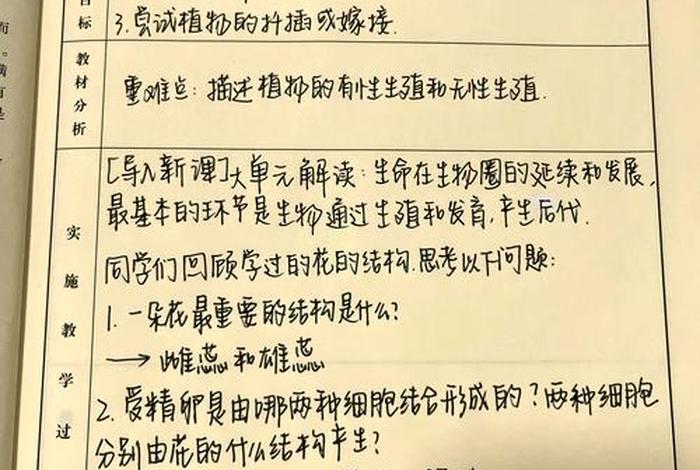 目标
3.尝试植物的扦插或嫁接.
教材分析
重难点:描述植物的有性生殖和无性生殖.
实施教学过
[导入新课]大单元解读:生命在生物圈的延续和发展,
最基本的环节是生物通过生殖和发育,产生后代.
同学们回顾学过的花的结构.思考以下问题:
1.一朵花最重要的结构是什么?
→雌蕊和雄蕊
2.受精卵是由哪两种细胞结合形成的?两种细胞
分别由花的什么结构产生?